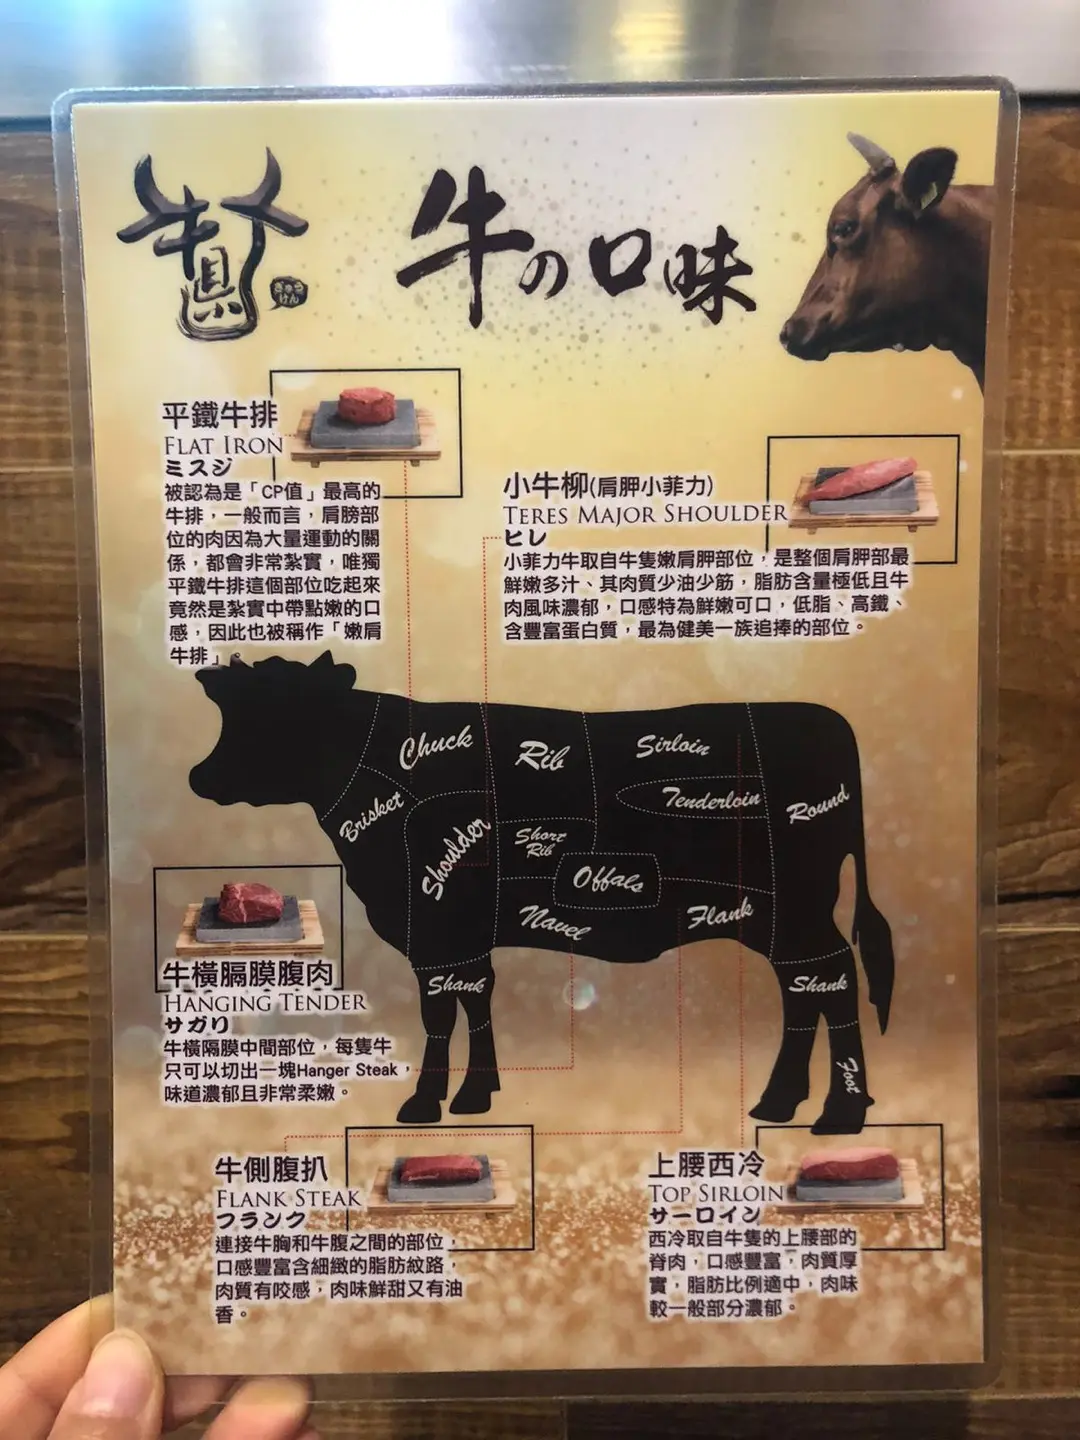 牛の口味
牛県
ぎゅう
けん
平鐵牛排
FLAT IRON
ミスジ
被認為是「CP值」最高的
牛排，一般而言，肩膀部
位的肉因為大量運動的關
係，都會非常紮實，唯獨
平鐵牛排這個部位吃起來
竟然是紮實中帶點嫩的口
感，因此也被稱作「嫩肩
牛排」。
小牛柳(肩胛小菲力)
TERES MAJOR SHOULDER
ヒレ
小菲力牛取自牛隻嫩肩胛部位，是整個肩胛部最
鮮嫩多汁、其肉質少油少筋，脂肪含量極低且牛
肉風味濃郁，口感特為鮮嫩可口，低脂、高鐵、
含豐富蛋白質，最為健美一族追捧的部位。
Chuck
Rib
Sirloin
Tenderloin
Round
Brisket
Shoulder
Short
Rib
Offals
Navel
Flank
Shank
Shank
Foot
牛橫膈膜腹肉
HANGING TENDER
サガリ
牛橫隔膜中間部位，每隻牛
只可以切出一塊Hanger Steak，
味道濃郁且非常柔嫩。
牛側腹扒
FLANK STEAK
フランク
連接牛胸和牛腹之間的部位，
口感豐富含細緻的脂肪紋路，
肉質有咬感，肉味鮮甜又有油
香。
上腰西冷
TOP SIRLOIN
サーロイン
西冷取自牛隻的上腰部的
脊肉，口感豐富，肉質厚
實，脂肪比例適中，肉味
較一般部分濃郁。